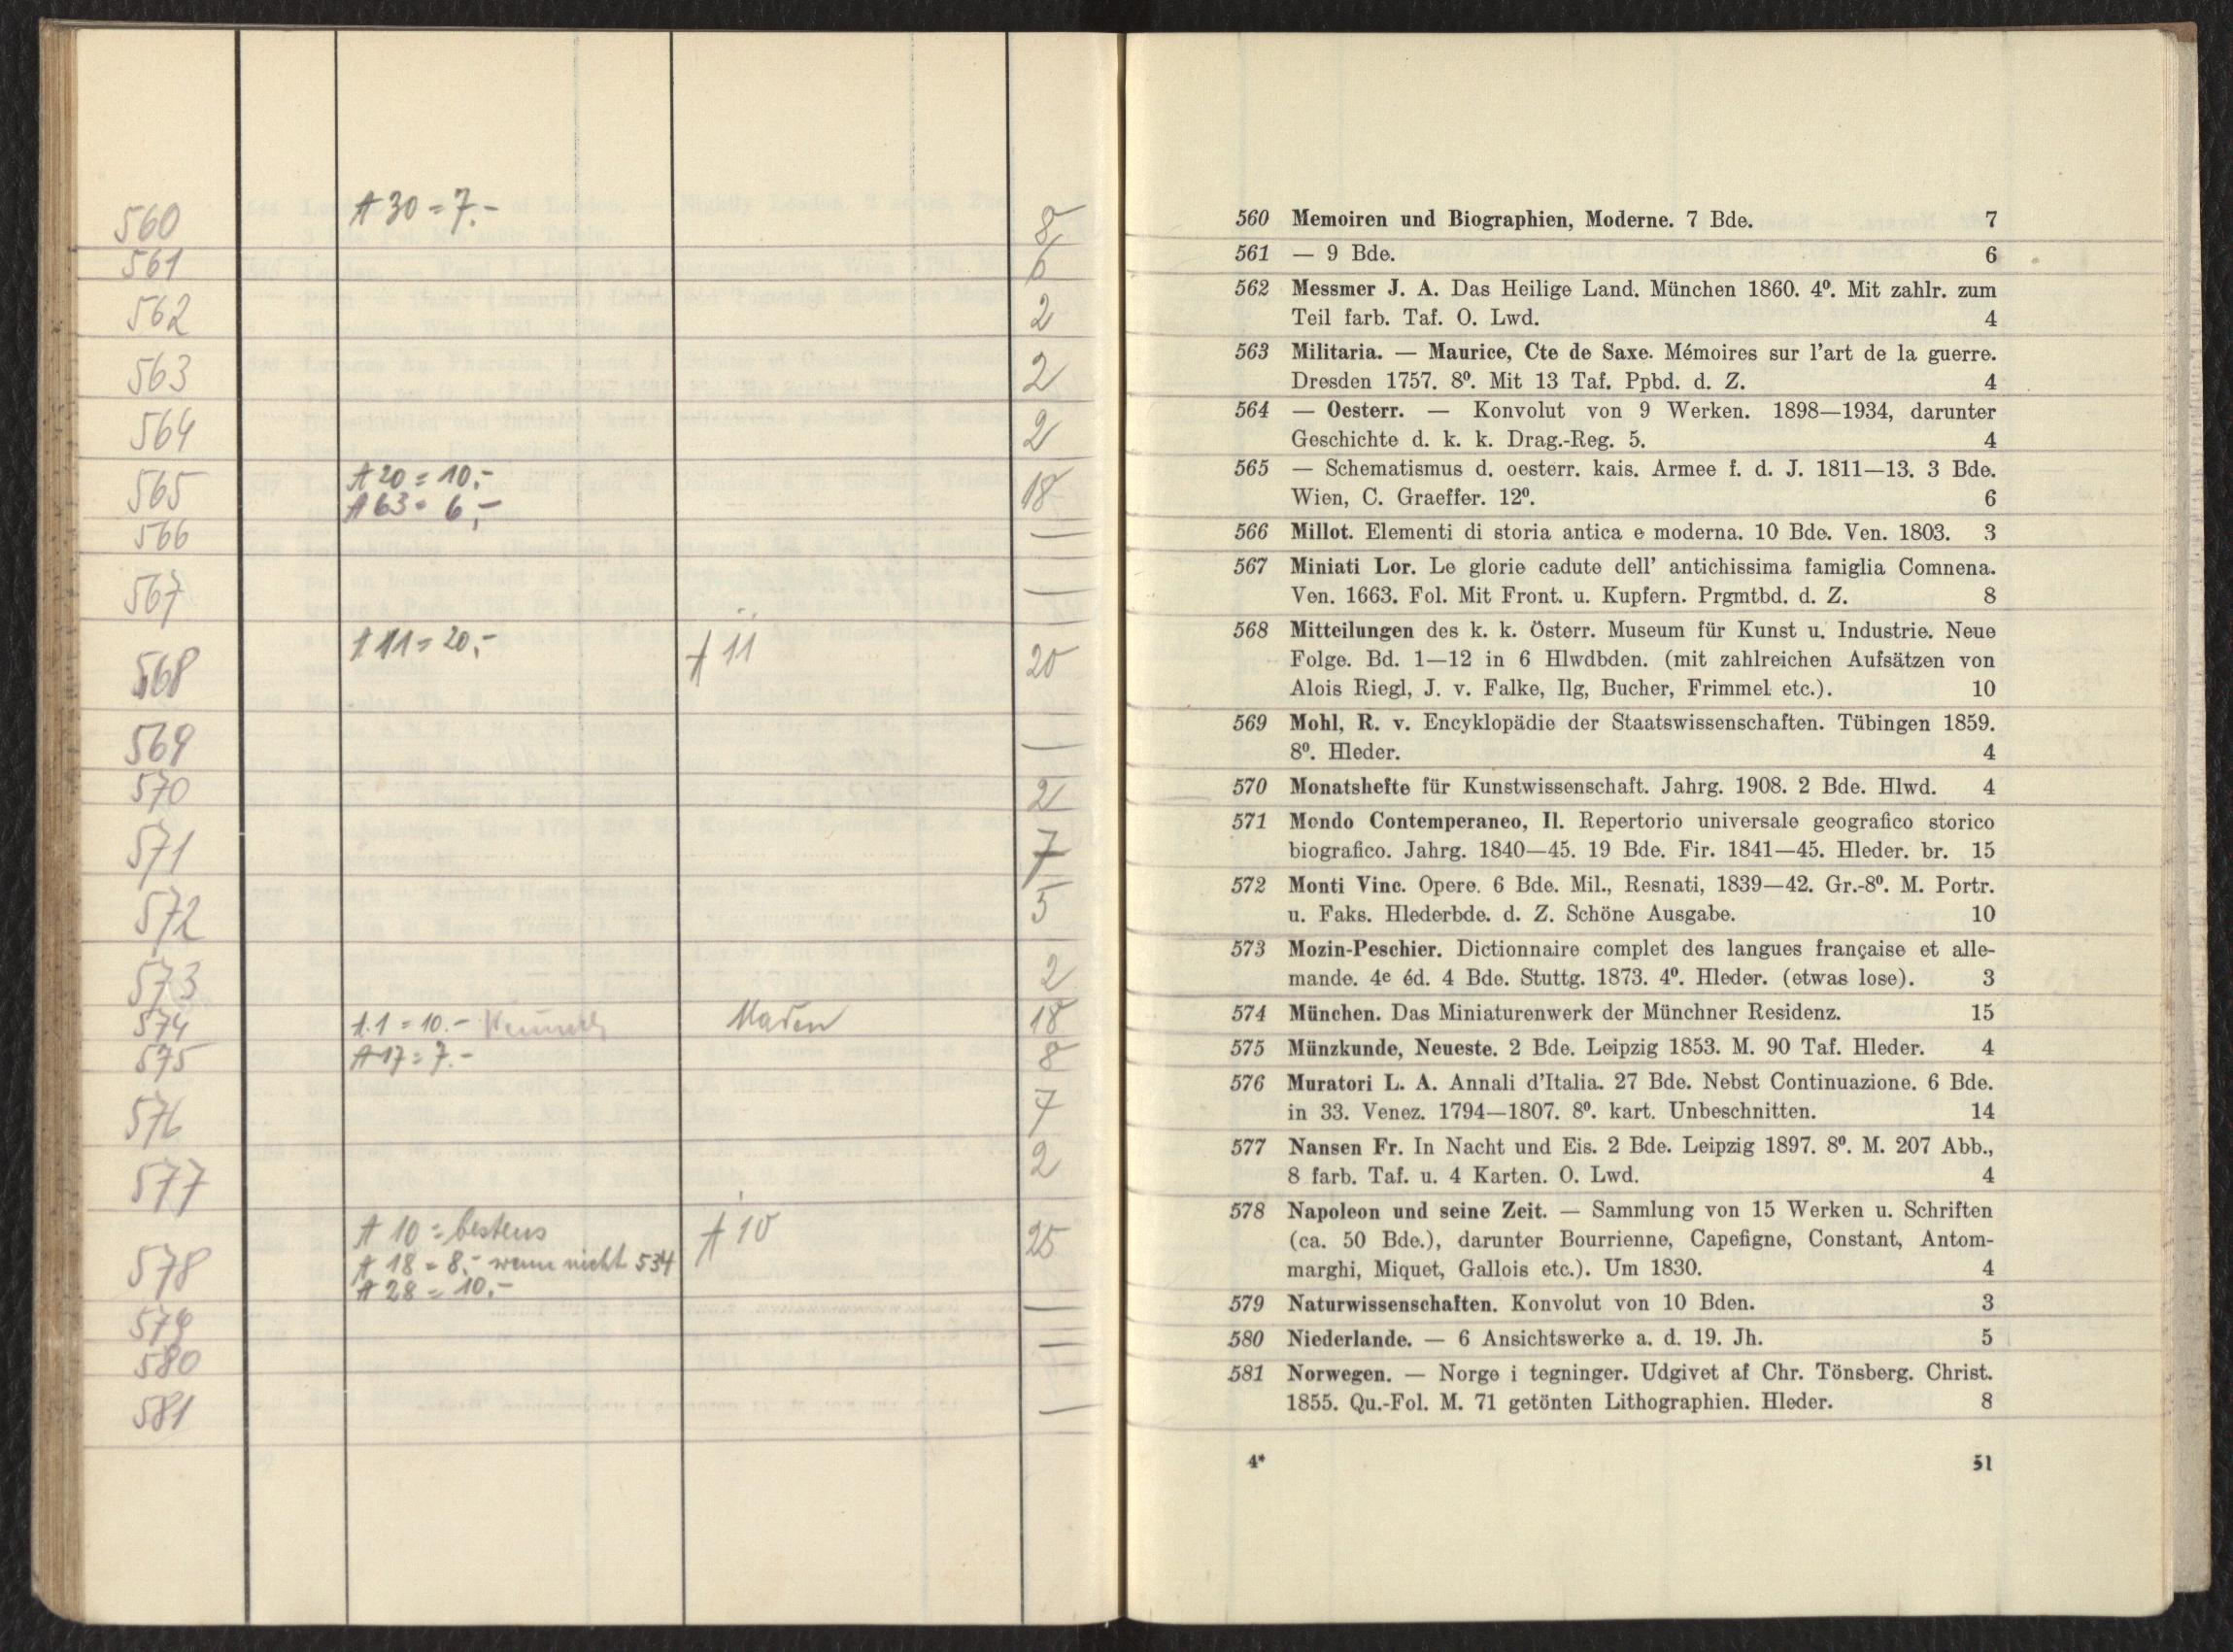 560 A 30 = 7.- 8
561 6
562 2
563 2
564 2
565 A 20 = 10,- 18
A 63 = 6,-
566 —
567 —
568 A 11 = 20,- A 11 20
569 —
570 2
571 7
572 5
573 2
574 A.1 = 10.- 18
575 A 17 = 7.- 8
576 7
577 2
578 A 10 = bestens A 10 25
A 18 = 8,- wenn nicht 534
A 28 = 10,-
579 —
580 —
581 —
560 Memoiren und Biographien, Moderne. 7 Bde. 7
561 — 9 Bde. 6
562 Messmer J. A. Das Heilige Land. München 1860. 4⁰. Mit zahlr. zum
Teil farb. Taf. O. Lwd. 4
563 Militaria. — Maurice, Cte de Saxe. Mémoires sur l'art de la guerre.
Dresden 1757. 8⁰. Mit 13 Taf. Ppbd. d. Z. 4
564 — Oesterr. — Konvolut von 9 Werken. 1898—1934, darunter
Geschichte d. k. k. Drag.-Reg. 5. 4
565 — Schematismus d. oesterr. kais. Armee f. d. J. 1811—13. 3 Bde.
Wien, C. Graeffer. 12⁰. 6
566 Millot. Elementi di storia antica e moderna. 10 Bde. Ven. 1803. 3
567 Miniati Lor. Le glorie cadute dell' antichissima famiglia Comnena.
Ven. 1663. Fol. Mit Front. u. Kupfern. Prgmtbd. d. Z. 8
568 Mitteilungen des k. k. Österr. Museum für Kunst u. Industrie. Neue
Folge. Bd. 1—12 in 6 Hlwdbden. (mit zahlreichen Aufsätzen von
Alois Riegl, J. v. Falke, Ilg, Bucher, Frimmel etc.). 10
569 Mohl, R. v. Encyklopädie der Staatswissenschaften. Tübingen 1859.
8⁰. Hleder. 4
570 Monatshefte für Kunstwissenschaft. Jahrg. 1908. 2 Bde. Hlwd. 4
571 Mondo Contemperaneo, Il. Repertorio universale geografico storico
biografico. Jahrg. 1840—45. 19 Bde. Fir. 1841—45. Hleder. br. 15
572 Monti Vinc. Opere. 6 Bde. Mil., Resnati, 1839—42. Gr.-8⁰. M. Portr.
u. Faks. Hlederbde. d. Z. Schöne Ausgabe. 10
573 Mozin-Peschier. Dictionnaire complet des langues française et alle-
mande. 4e éd. 4 Bde. Stuttg. 1873. 4⁰. Hleder. (etwas lose). 3
574 München. Das Miniaturenwerk der Münchner Residenz. 15
575 Münzkunde, Neueste. 2 Bde. Leipzig 1853. M. 90 Taf. Hleder. 4
576 Muratori L. A. Annali d'Italia. 27 Bde. Nebst Continuazione. 6 Bde.
in 33. Venez. 1794—1807. 8⁰. kart. Unbeschnitten. 14
577 Nansen Fr. In Nacht und Eis. 2 Bde. Leipzig 1897. 8⁰. M. 207 Abb.,
8 farb. Taf. u. 4 Karten. O. Lwd. 4
578 Napoleon und seine Zeit. — Sammlung von 15 Werken u. Schriften
(ca. 50 Bde.), darunter Bourrienne, Capefigne, Constant, Antom-
marghi, Miquet, Gallois etc.). Um 1830. 4
579 Naturwissenschaften. Konvolut von 10 Bden. 3
580 Niederlande. — 6 Ansichtswerke a. d. 19. Jh. 5
581 Norwegen. — Norge i tegninger. Udgivet af Chr. Tönsberg. Christ.
1855. Qu.-Fol. M. 71 getönten Lithographien. Hleder. 8
4* 51